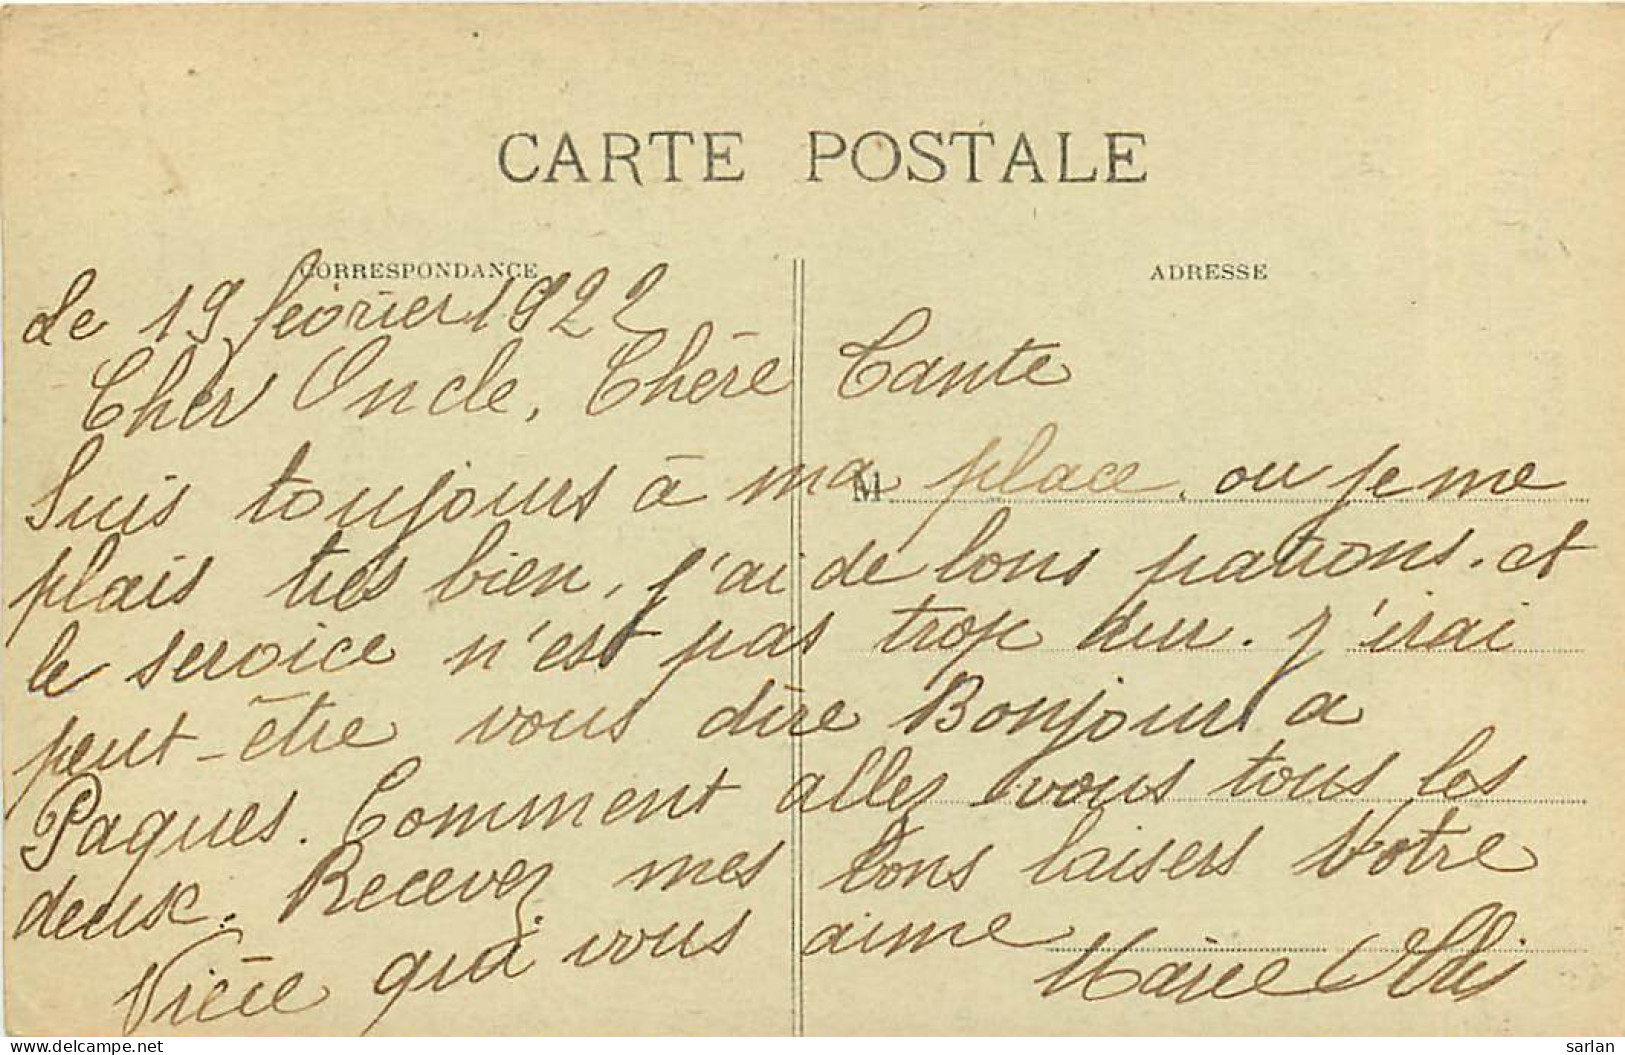 CARTE POSTALE
CORRESPONDANCE
ADRESSE
de 19 février 1922
Cher Oncle, Chère Tante
Suis toujours à ma place. ou je me
M
plais très bien, j'ai de bons patrons. et
le service n'est pas trop dur. j'irai
peut-être vous dire Bonjour a
Paques. Comment allez vous tous les
deux. Recevez mes bons baisers Votre
Nièce qui vous aime Marie
delcampe.net
sarlan